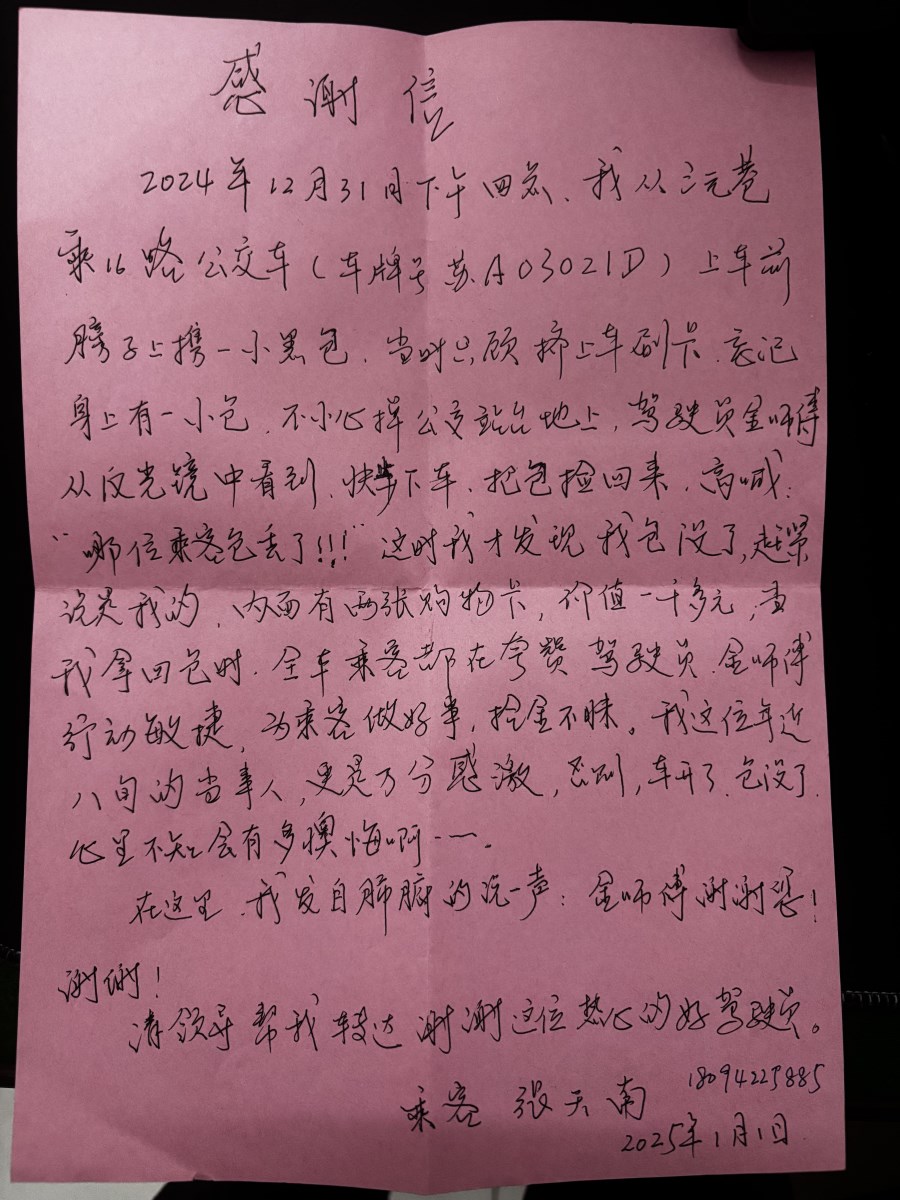 感谢信
2024年12月31日下午四点、我从三元巷
乘16路公交车(车牌号苏A03021D)上车前
膀子上携一小黑包、当时只顾挤上车刷卡、忘记
身上有一小包、不小心掉公交站台地上,驾驶员金师傅
从反光镜中看到、快步下车、把包捡回来、高喊:
“哪位乘客包丢了!!!”这时我才发现我包没了,赶紧
说是我的,内面有两张购物卡,价值一千多元,当
我拿回包时、全车乘客都在夸赞驾驶员金师傅
行动敏捷,为乘客做好事,拾金不昧。我这位年近
八旬的当事人,更是万分感激,否则,车开了、包没了、
心里不知会有多懊悔啊……
在这里、我发自肺腑的说一声:金师傅谢谢您!
谢谢!
请领导帮我转达谢谢这位热心的好驾驶员。
乘客 张天南 18094225885
2025年1月1日